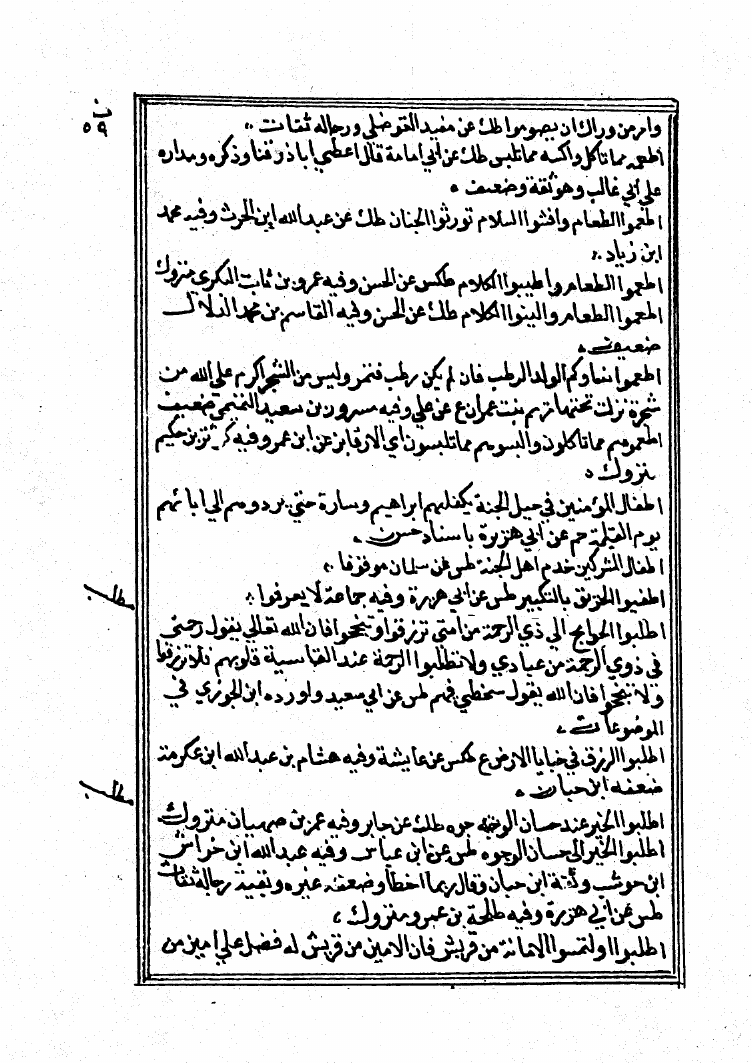 ن
٥٩
وامر من وراك ان يصوموا طك عن معبد القرشي ورجاله ثقات
اطعمه مما تاكل واكسه مما تلبس طك عن أبي امامة قال اعطى اباذر قنا وذكره ومداره
على أبي غالب وهو ثقة وضعيف
اطعموا الطعام وافشوا السلام تورثوا الجنان طك عن عبد الله ابن الحرث وفيه محمد
ابن زياد
اطعموا الطعام واطيبوا الكلام طكس عن الحسن وفيه عمرو بن ثابت البكري متروك
اطعموا الطعام والينوا الكلام طك عن الحسن وفيه القاسم بن محمد الدلال
ضعيف
اطعموا نساوكم الولد الرطب فان لم يكن رطب فتمر وليس من الشجر اكرم على الله من
شجرة نزلت تحتها مريم بنت عمران ع عن علي وفيه مسرور بن سعيد التميمي ضعيف
اطعموهم مما تاكلون والبسوهم مما تلبسون اي الارقا بز عن ابن عمر وفيه كوثر بن حكيم
متروك
اطفال المؤمنين في جبل الجنة يكفلهم ابراهيم وسارة حتي يردوهم الي ابائهم
يوم القيمة حم عن ابي هريرة باسناد حسن
اطفال المشركين خدم اهل الجنة طس عن سلمان موقوفا
اطفيوا الحريق بالتكبير طس عن ابي هريرة وفيه جماعة لا يعرفوا
مطلب
اطلبوا الحوايج الي ذي الرحمة من امتي ترزقوا وتنجحوا فان الله تعالي يقول رحمتي
في ذوي الرحمة من عبادي ولا تطلبوا الرحمة عند القاسية قلوبهم فلا ترزقوا
ولا تنجحوا فان الله يقول سخطي فيهم طس عن ابي سعيد واورده ابن الجوزي في
الموضوعات
اطلبوا الرزق في خبايا الارض ع طكس عن عايشة وفيه هشام بن عبد الله ابن عكرمة
ضعفه ابن حبان
مطلب
اطلبوا الخير عند حسان الوجوه طك عن جابر وفيه عمر بن صهبان متروك
اطلبوا الخير الي حسان الوجوه طس عن ابن عباس وفيه عبد الله ابن خراش
ابن حوشب وثقه ابن حبان وقال ربما اخطأ وضعفه غيره وبقية رجاله ثقات
طس عن ابي هريرة وفيه طلحة بن عمرو متروك
اطلبوا او التمسوا الامانة من قريش فان الامين من قريش له فضل علي امين من